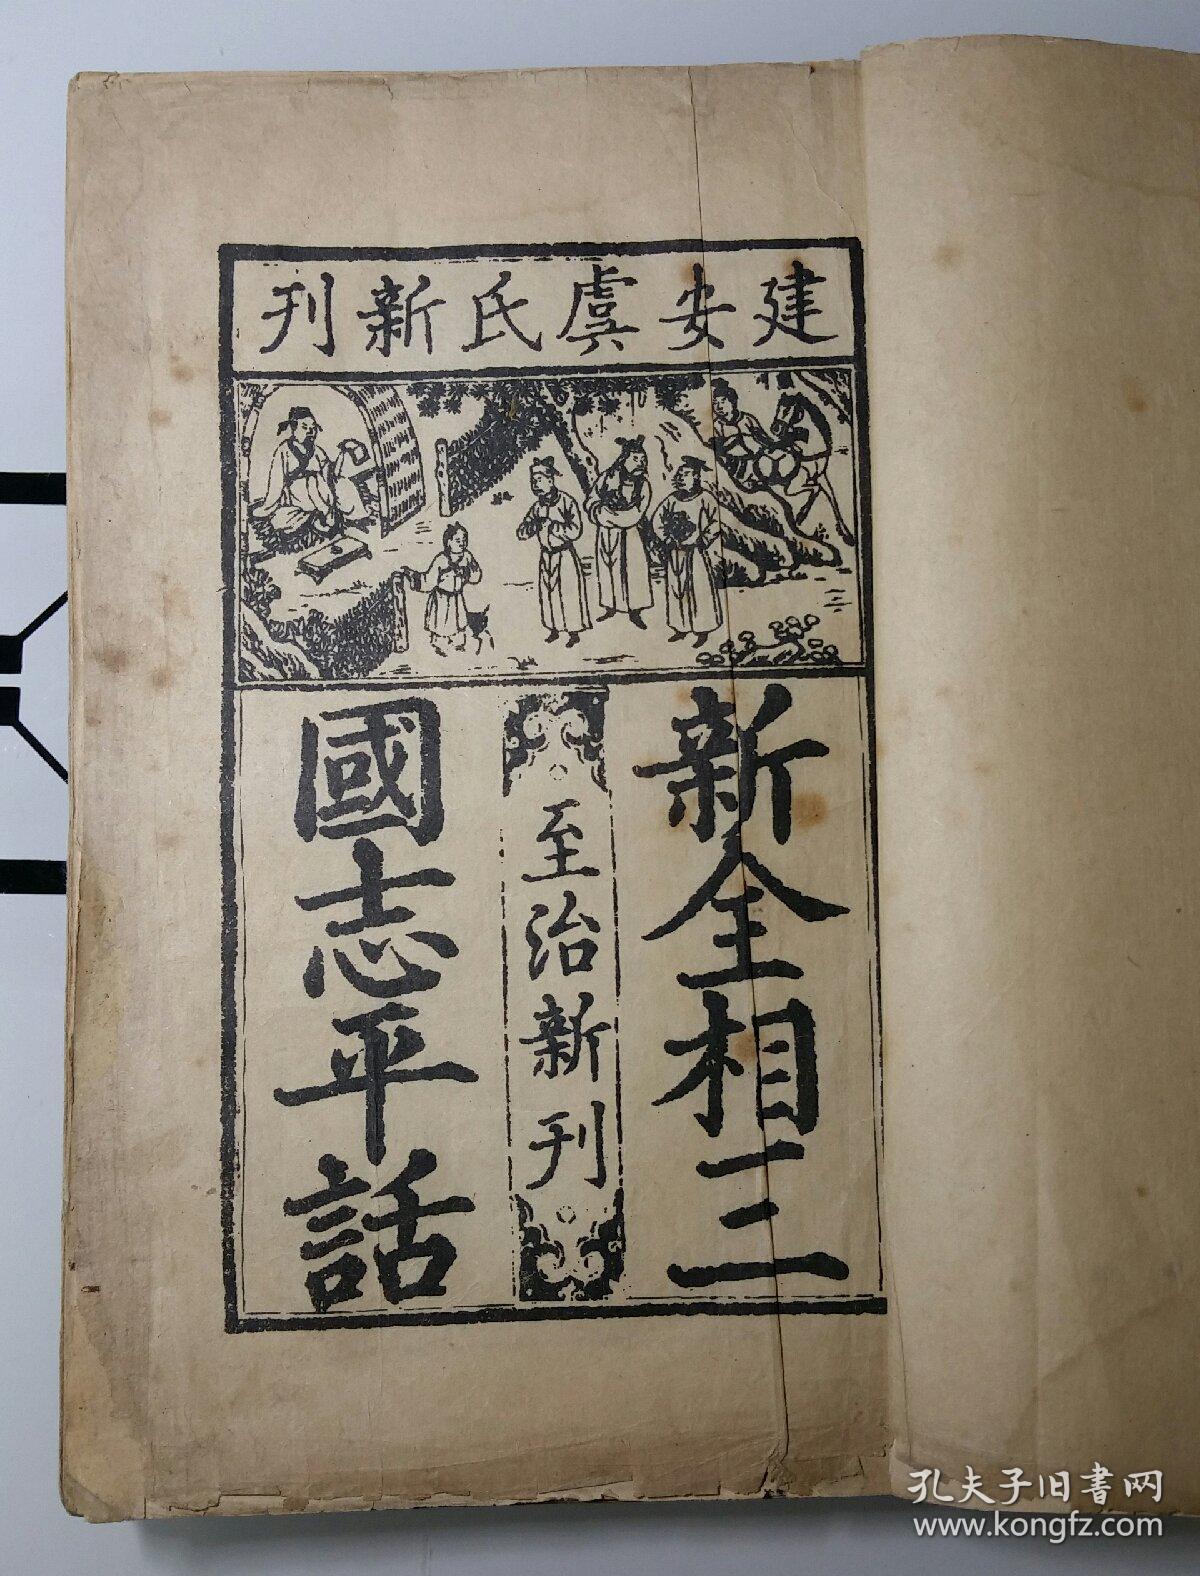 建安虞氏新刊
新全相三
至治新刊
國志平話
孔夫子旧书网
www.kongfz.com